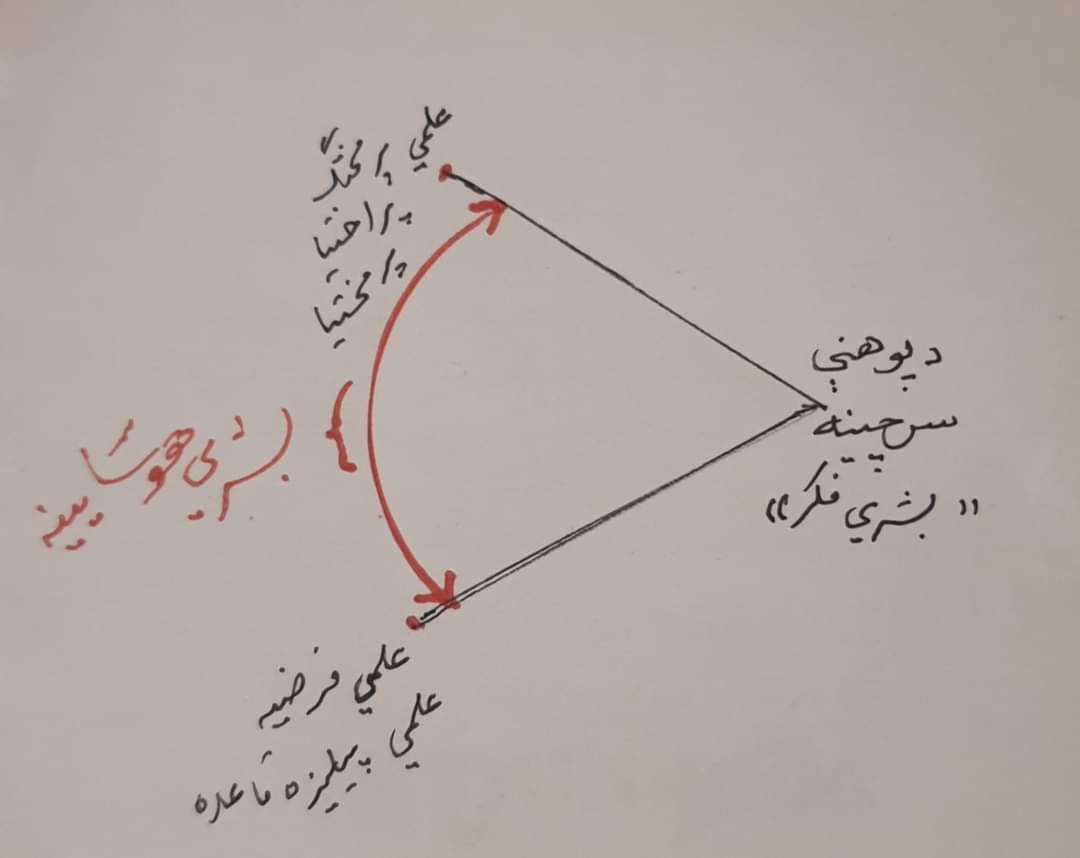 علمي پرمختګ
پراختیا
پرمختیا
د پوهنې
سرچینه
"بشري فکر"
بشري هوښیاینه
علمي فرضیه
علمي پېلیزه قاعده